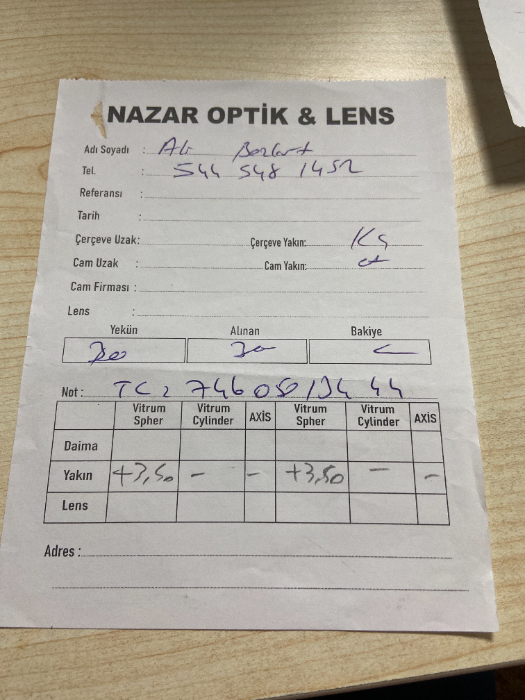 NAZAR OPTİK & LENS
Adı Soyadı : Ali Bozkurt
Tel. : 544 548 1452
Referansı :
Tarih :
Çerçeve Uzak: Çerçeve Yakın:
Cam Uzak : Cam Yakın:
Cam Firması :
Lens :
Yekün Alınan Bakiye
300 300 -
Not : TC: 746050134 44
Vitrum Spher Vitrum Cylinder AXİS Vitrum Spher Vitrum Cylinder AXİS
Daima
Yakın +3,50 - - +3,50 - -
Lens
Adres :